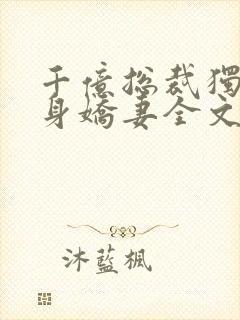 千億總裁獨
身嬌妻全文
沐藍楓